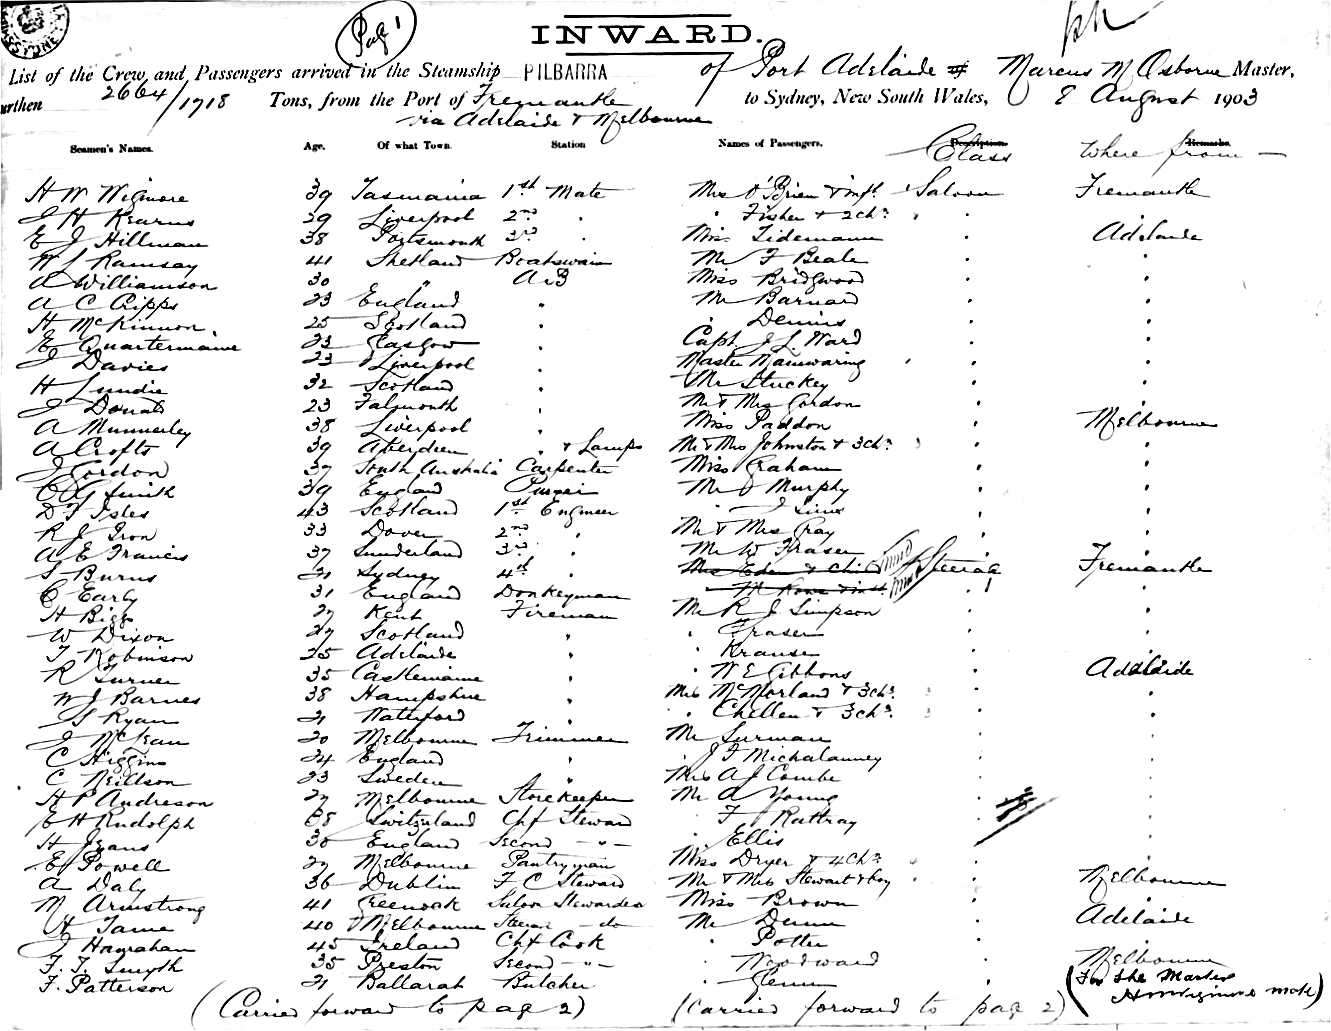 Pag 1
INWARD.
List of the Crew and Passengers arrived in the Steamship PILBARRA of Port Adelaide Marcus M Osborne Master,
Burthen 2664/1718 Tons, from the Port of Fremantle to Sydney, New South Wales, 8 August 1903
via Adelaide & Melbourne
Seamen's Names. Age. Of what Town. Station Names of Passengers. Description. Class Remarks. Where from
H W Wigmore 39 Tasmania 1st Mate Mrs O'Brien & inft. Saloon Fremantle
J H Kearns 29 Liverpool 2nd " " Fisher & 2 chn. " "
E J Hillman 38 Portsmouth 3rd " Miss Tidemann " Adelaide
W S Ramsay 41 Shetland Boatswain Mr F Beale " "
A Williamson 30 " AB Miss Bridgwood " "
A C Cripps 23 England " Mr Barnard " "
H McKinnon 25 Scotland " " Dennis " "
E Quartermaine 23 Glasgow " Capt. J L Ward " "
J Davies 23 Liverpool " Master Mainwaring " "
H Lundie 32 Scotland " Mr Stuckey " "
J Donat 23 Falmouth " Mr & Mrs Gordon " "
A Munnerley 38 Liverpool " Miss Paddon " Melbourne
A Crofts 39 Aberdeen " & Lamps Mr & Mrs Johnston & 3 chn. " "
J Gordon 37 South Australia Carpenter Miss Graham " "
C G Smith 39 England Purser Mr J Murphy " "
D F Isles 43 Scotland 1st Engineer " J " "
R J Iron 33 Dover 2nd " Mr & Mrs Gray " "
A E Francis 37 Sunderland 3rd " Mr W Fraser " "
S Burns 21 Sydney 4th " Mrs Eden & Child Steerage Fremantle
C Early 31 England Donkeyman " & inft. " "
H Bigg 27 Kent Fireman Mr R J Simpson " "
W Dixon 27 Scotland " " Fraser " "
T Robinson 25 Adelaide " " Krause " "
R Turner 35 Castlemaine " " W E Gibbons " Adelaide
W J Barnes 38 Hampshire " Mrs McNorland & 3 chn. " "
S Ryan 21 Watterford " " Chellen & 3 chn. " "
J McKean 20 Melbourne Trimmer Mr Surman " "
C Higgins 24 England " " J F Michalanney " "
C Neillson 23 Sweden " Mrs A J Combe " "
H P Andreson 27 Melbourne Storekeeper Mr A Young " "
E H Rudolph 38 Switzerland Chf Steward " F Rattray " "
H Jeans 30 England Second -"- " Ellis " "
E Powell 27 Melbourne Pantryman Miss Dryer & 4 Chn. " "
A Daly 36 Dublin F C Steward Mr & Mrs Stewart & boy " Melbourne
M Armstrong 41 Greenock Saloon Stewardess Miss Brown " "
H Tame 40 Melbourne Steerage -do- Mr Dunn " Adelaide
J Hanrahan 45 Ireland Chf Cook " Potter " "
F. T. Smyth 35 Preston Second -"- " Woodward " Melbourne
F. Patterson 21 Ballarat Butcher " Glenn "
(Carried forward to page 2) (Carried forward to page 2)
(For the Master
H W Wigmore mate)